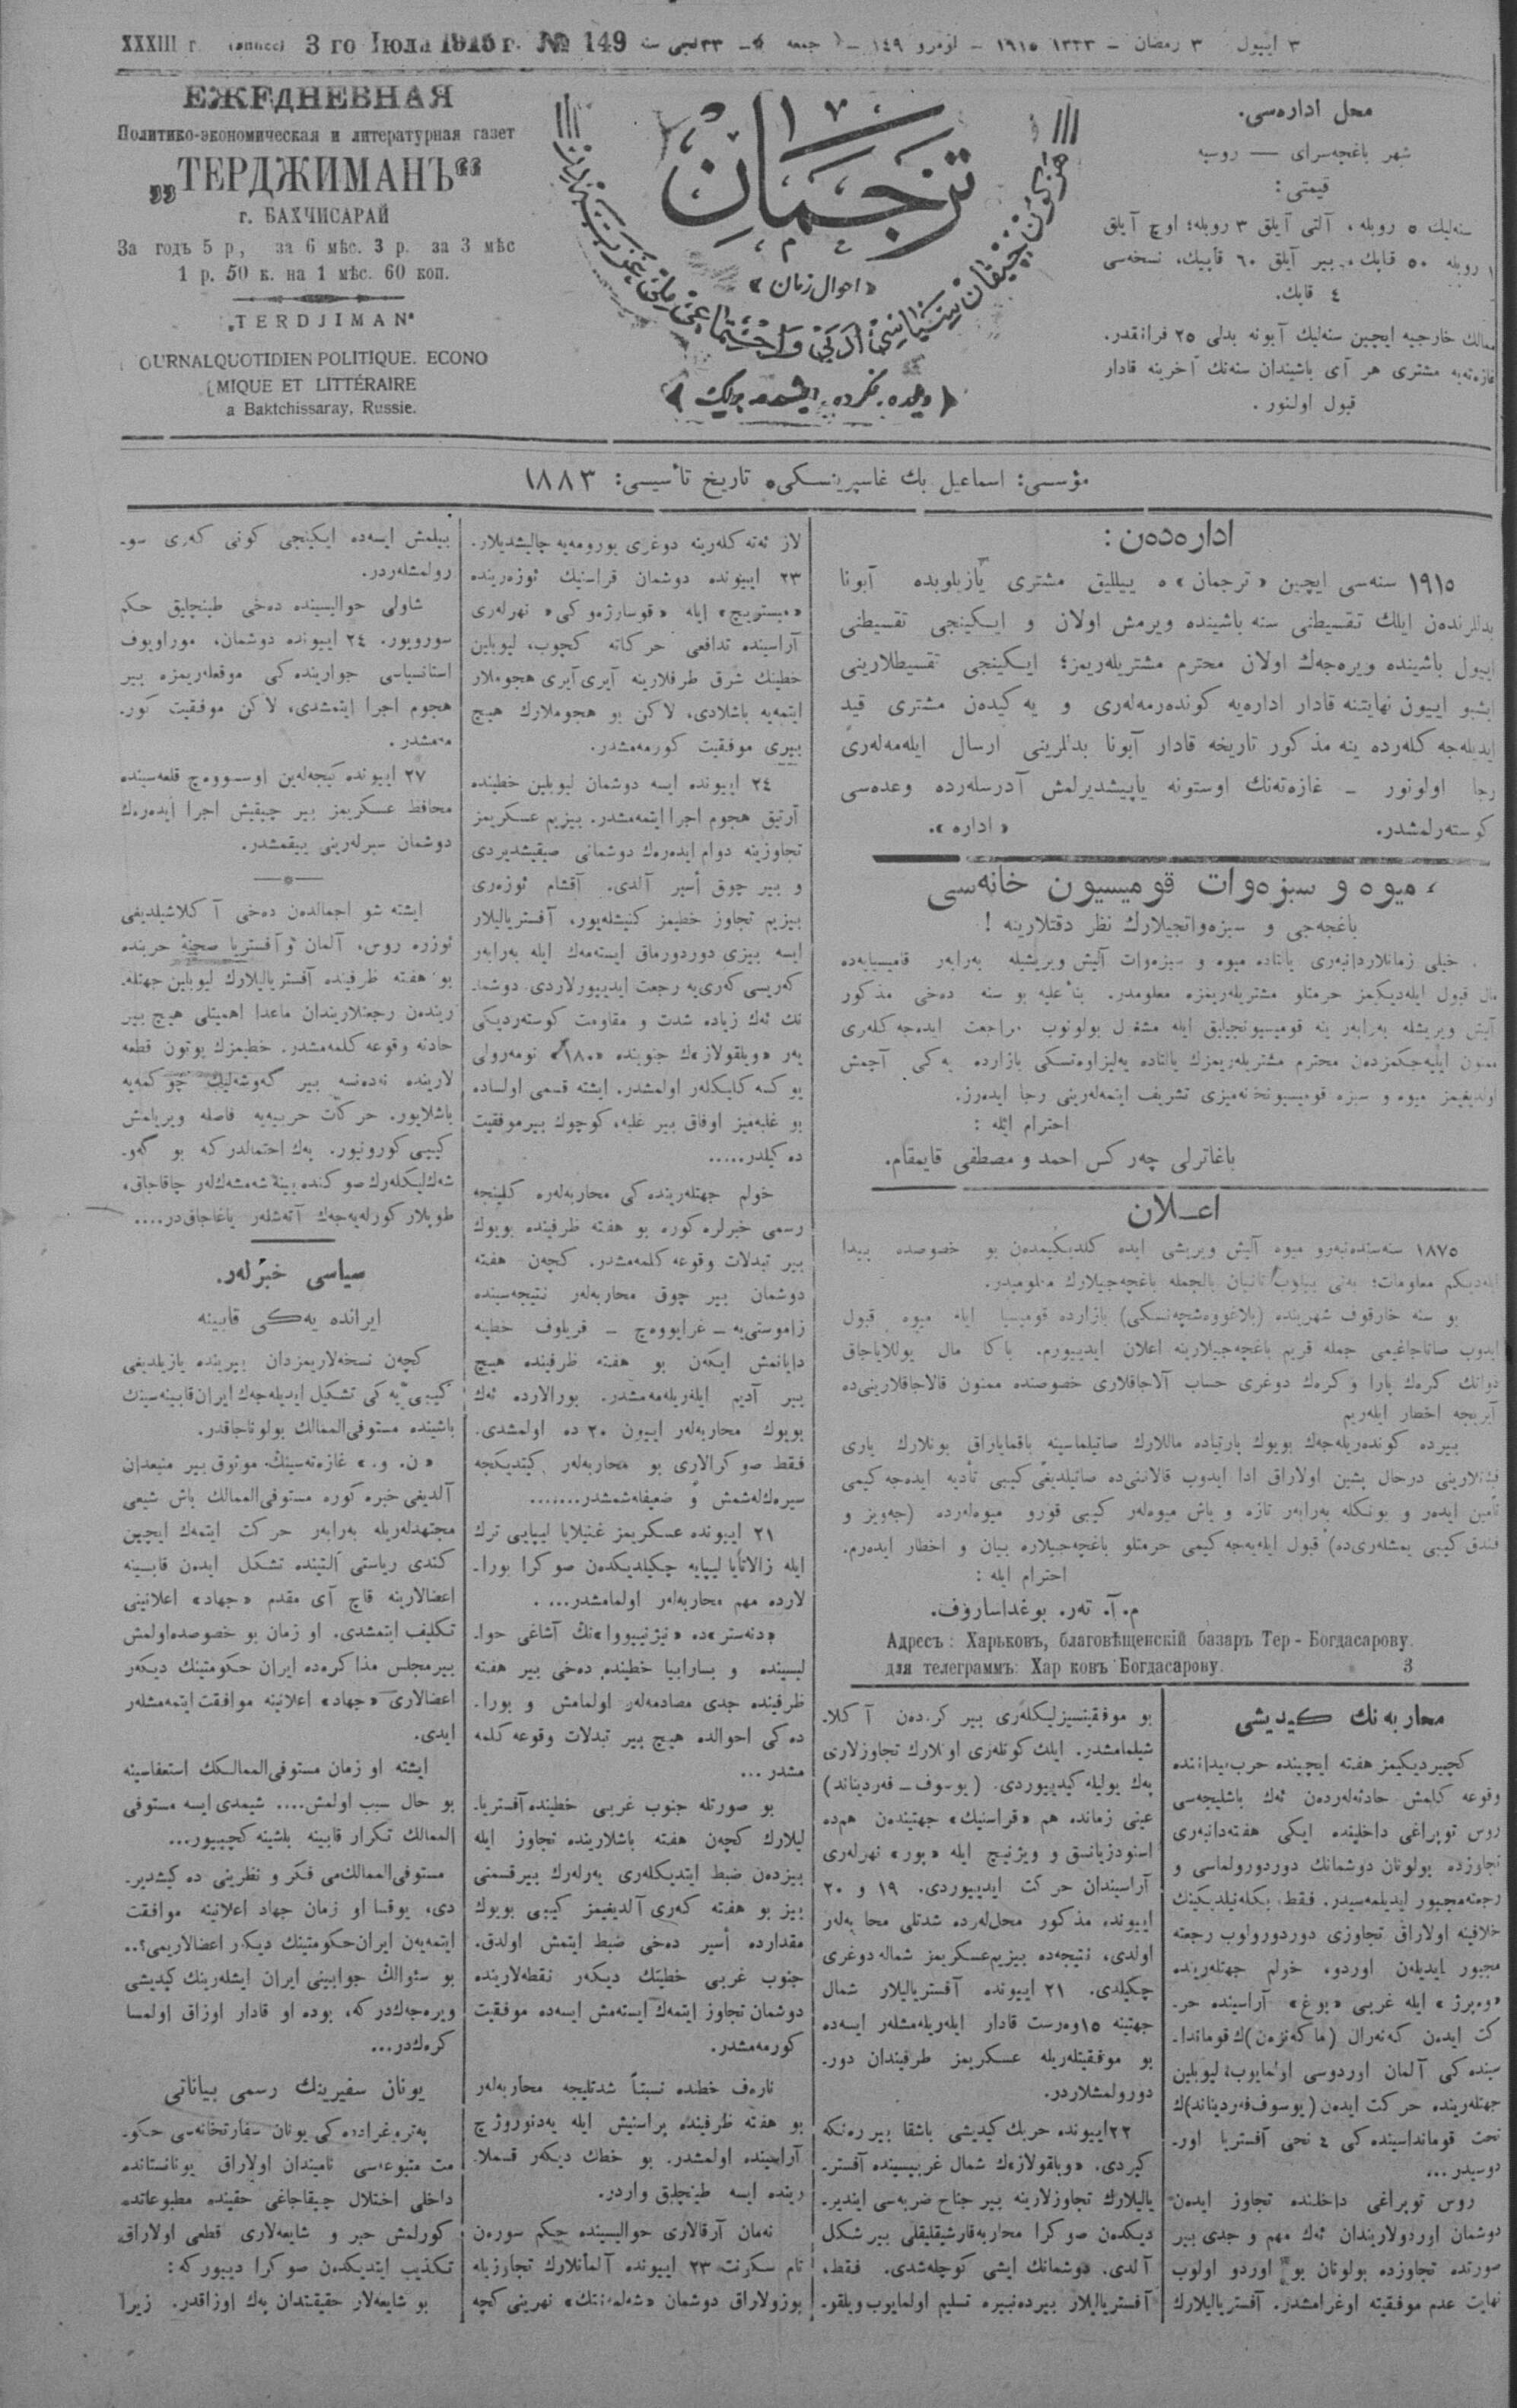 ٣ اییول ٣ رمضان – ١٣٣٣ ١٩١٥ – نومرو ١٤٩ – جمعه – ٣٣ نجی سنه № 149 3 го Іюля 1915 г. XXXIII г.
ЕЖЕДНЕВНАЯ
Политико-экономическая и литературная газет
„ТЕРДЖИМАНЪ“
г. БАХЧИСАРАЙ
За годъ 5 р, за 6 мѣс. 3 р. за 3 мѣс
1 р. 50 к. на 1 мѣс. 60 коп.
„TERDJIMAN“
OURNALQUOTIDIEN POLITIQUE. ECONO
MIQUE ET LITTÉRAIRE
a Baktchissaray, Russie.
ترجمان
« احوال زمان »
هر كون چیقان سیاسی، ادبی و اجتماعی ملی غزته‌در
دیلده، فكرده، ایشده بیرلك
محل اداره‌سی.
شهر باغچه‌سرای — روسیه
قیمتی :
سنه‌لیك ٥ روبله، آلتی آیلق ٣ روبله؛ اوچ آیلق
١ روبله ٥٠ قاپك، بیر آیلق ٦٠ قاپیك، نسخه‌سی
٤ قاپك.
ممالك خارجیه ایچین سنه‌لیك آبونه بدلی ٢٥ فرانقدر.
غازه‌ته‌یه مشتری هر آی باشیندان سنه‌نك آخرینه قادار
قبول اولنور .
مؤسسی: اسماعیل بك غاسپرینسكی، تاریخ تأسیسی: ١٨٨٣
اداره‌دن :
١٩١٥ سنه‌سی ایچین « ترجمان » ه ییللیق مشتری یازیلوبده آبونا
بدللرندن ایلك تقسیطنی سنه باشینده ویرمش اولان و ایكینجی تقسیطنی
اییول باشینده ویره‌جه‌ك اولان محترم مشتریله‌ریمز؛ ایكینجی تقسیطلارینی
ایشبو اییون نهایتنه قادار اداره‌یه كونده‌رمه‌له‌ری و یه‌كیدن مشتری قید
ایدیله‌جه‌كله‌رده ینه مذكور تاریخه قادار آبونا بدللرینی ارسال ایله‌مه‌له‌ری
رجا اولونور – غازه‌ته‌نك اوستونه یاپیشدیرلمش آدرسله‌رده وعده‌سی
كوسته‌رلمشدر. « اداره ».
میوه و سبزه‌وات قومیسیون خانه‌سی
باغچه‌جی و سبزه‌واتجیلارك نظر دقتلارینه !
خیلی زمانلاردانبه‌ری یالتاده میوه و سبزه‌وات آلیش ویریشیله به‌رابه‌ر قامیسیایه‌ده
مال قبول ایله‌دیكمز حرمتلو مشتریله‌ریمزه معلومدر. بنأعلیه بو سنه ده‌خی مذكور
آلیش ویریشله به‌رابه‌ر ینه قومیسیونجیلیق ایله مشغل بولونوب مراجعت ایده‌جه‌كله‌ری
ممنون ایلیه‌جكمزدن محترم مشتریله‌ریمزك یالتاده یه‌لیزاوه‌تسكی بازارده یه‌كی آچمش
اولدیغیمز میوه و سبزه قومیسیونخانه‌میزی تشریف ایتمه‌له‌رینی رجا ایده‌رز.
احترام ایله :
باغاترلی چه‌ركس احمد و مصطفی قایمقام.
اعـــلان
١٨٧٥ سنه‌سنده‌نبه‌رو میوه آلیش ویریشی ایده كلدیكیمدن بو خصوصده پیدا
ایله‌دیكم معلومات؛ یه‌نی بیلوب تانیان بالجمله باغچه‌جیلارك معلومیدر.
بو سنه خارقوف شهرینده (بلاغووه‌شچه‌نسكی) بازارده قومیسیا ایله میوه قبول
ایدوب صاتاجاغیمی جمله قریم باغچه‌جیلارینه اعلان ایدییورم. باكا مال یوللایاجاق
ذواتك كره‌ك پارا و كره‌ك دوغری حساب آلاجاقلاری خصوصنده ممنون قالاجاقلارینی‌ده
آیریجه اخطار ایله‌ریم
بیرده كونده‌ریله‌جه‌ك بویوك پارتیاده ماللارك صاتیلماسینه باقمایاراق بونلارك یاری
فیئاتلارینی درحال پشین اولاراق ادا ایدوب قالانی‌ده صاتیلدیغی كیبی تأدیه ایده‌جه‌كیمی
تأمین ایده‌ر و بونكله به‌رابه‌ر تازه و یاش میوه‌له‌ر كیبی قورو میوه‌له‌رده (جه‌ویز و
فندق كیبی یمشله‌ری‌ده) قبول ایله‌یه‌جه‌كیمی حرمتلو باغچه‌جیلاره بیان و اخطار ایده‌رم.
احترام ایله :
م. آ. ته‌ر. بوغداساروف.
Адресъ : Харьковъ, благовѣщенскій базаръ Тер - Богдасарову.
для телеграммъ: Хар ковъ Богдасарову. 3
محاربه‌نك كیدیشی
كچیردیكیمز هفته ایچینده حرب میداننده
وقوعه كلمش حادثه‌له‌ردن ئه‌ك باشلیجه‌سی
روس توپراغی داخلینده ایكی هفته‌دانبه‌ری
تجاوزده بولونان دوشمانك دوردورولماسی و
رجعته‌مجبور ایدیلمه‌سیدر. فقط، بكله‌نیلدیكینك
خلافینه اولاراق تجاوزی دوردورولوب رجعته
مجبور ایدیله‌ن اوردو، خولم جهتله‌رینده
«وه‌برژ» ایله غربی «بوغ» آراسینده حر-
كت ایده‌ن كه‌نه‌رال (ماكه‌نزه‌ن)ك قوماندا-
سینده‌كی آلمان اوردوسی اولمایوب، لیوبلین
جهتله‌رینده حركت ایده‌ن (یوسوف‌فه‌ردیناند)ك
تحت قومانداسینده‌كی ٤ نجی آفستریا اور-
دوسیدر...
روس توپراغی داخلنده تجاوز ایده‌ن
دوشمان اوردولاریندان ئه‌ك مهم و جدی بیر
صورتده تجاوزده بولونان بو اوردو اولوب
نهایت عدم موفقیته اوغرامشدر. آفستریالیلارك
بو موفقیتسیزلیكله‌ری بیر كره‌دن آكلا-
شیلمامشدر. ایلك كونله‌ری اونلارك تجاوزلاری
په‌ك یولیله كیدییوردی. (یوسوف – فه‌ردیناند)
عینی زمانده هم «قراسنیك» جهتیندن هم‌ده
اسنودزیانسق و ویژنیچ ایله «بور» نهرله‌ری
آراسیندان حركت ایدییوردی. ١٩ و ٢٠
اییونده مذكور محل‌له‌رده شدتلی محاربه‌له‌ر
اولدی، نتیجه‌ده بیزیم‌عسكریمز شماله دوغری
چكیلدی. ٢١ اییونده آفستریالیلار شمال
جهتینه ١٥ وه‌رست قادار ایله‌ریله‌مشله‌ر ایسه‌ده
بو موفقیتله‌ریله عسكریمز طرفیندان دور-
دورولمشلاردر.
٢٢ اییونده حربك كیدیشی باشقا بیر ره‌نكه
كیردی. «ویلقولاز»ك شمال غربیسینده آفستر-
یالیلارك تجاوزلارینه بیر جناح ضربه‌سی ایندیر-
دیكدن صوكرا محاربه‌قارشیقلیقلی بیر شكل
آلدی. دوشمانك ایشی كوچله‌شدی. فقط،
آفستریالیلار بیرده‌نبیره تسلیم اولمایوب ویلقو-
لاز ئه‌ته‌كله‌رینه دوغری یورومه‌یه چالیشدیلار.
٢٣ اییونده دوشمان قراسنیك ئوزه‌رینده
«بیستریچ» ایله «قوسارژه‌وكی» نهرله‌ری
آراسینده تدافعی حركاته كچوب، لیوبلین
خطینك شرق طرفلارینه آیری آیری هجوملار
ایتمه‌یه باشلادی، لاكن بو هجوملارك هیچ
بیری موفقیت كورمه‌مشدر.
٢٤ اییونده ایسه دوشمان لیوبلین خطینده
آرتیق هجوم اجرا ایتمه‌مشدر. بیزیم عسكریمز
تجاوزینه دوام ایده‌ره‌ك دوشمانی صیقیشدیردی
و بیر چوق أسیر آلدی. آقشام ئوزه‌ری
بیزیم تجاوز خطیمز كنیشله‌یور، آفستریالیلار
ایسه بیزی دوردورماق ایسته‌مه‌ك ایله به‌رابه‌ر
كه‌ریسی كه‌ری‌یه رجعت ایدییورلاردی. دوشما-
نك ئه‌ك زیاده شدت و مقاومت كوسته‌ردیكی
یه‌ر «ویلقولاز»ك جنوبنده «١٨٠» نومه‌رولی
یوكسه‌كلیكله‌ر اولمشدر. ایشته قسمی اولساده
بو غلبه‌میز اوفاق بیر غلبه، كوچوك بیرموفقیت
ده‌كیلدر.....
خولم جهتله‌رینده‌كی محاربه‌له‌ره كلینجه
رسمی خبرلره كوره بو هفته ظرفینده بویوك
بیر تبدلات وقوعه كلمه‌مشدر. كچه‌ن هفته
دوشمان بیر چوق محاربه‌له‌ر نتیجه‌سینده
زاموستی‌یه – غرابووه‌چ – قریلوف خطینه
دایانمش ایكه‌ن بو هفته ظرفینده هیچ
بیر آدیم ایله‌ریله‌مه‌مشدر. بورالارده ئه‌ك
بویوك محاربه‌له‌ر اییون ٢٠ ده اولمشدی.
فقط صوكرالاری بو محاربه‌له‌ر كیتدیكجه
سیره‌كله‌شمش و ضعیفله‌شمشدر.......
٢١ اییونده عسكریمز غنیلایا لیپایی ترك
ایله زالاتایا لیپایه چكیلدیكدن صوكرا بورا-
لارده مهم محاربه‌له‌ر اولمامشدر....
«دنه‌ستر»ده «نیژنییووا»نك آشاغی حوا-
لیسینده و بسارابیا خطینده ده‌خی بیر هفته
ظرفینده جدی مصادمه‌له‌ر اولمامش و بورا-
ده‌كی احوالده هیچ بیر تبدلات وقوعه كلمه
مشدر...
بو صورتله جنوب غربی خطینده آفستریا-
لیلارك كچه‌ن هفته باشلارینده تجاوز ایله
بیزدن ضبط ایتدیكله‌ری یه‌رله‌رك بیرقسمنی
بیز بو هفته كه‌ری آلدیغیمز كیبی بویوك
مقدارده أسیر ده‌خی ضبط ایتمش اولدق.
جنوب غربی خطینك دیكه‌ر نقطه‌لارینده
دوشمان تجاوز ایتمه‌ك ایسته‌مش ایسه‌ده موفقیت
كورمه‌مشدر.
ناره‌ف خطده نسبتاً شدتلیجه محاربه‌له‌ر
بو هفته ظرفینده پراسنیش ایله یه‌دنوروژچ
آراسینده اولمشدر. بو خطك دیكه‌ر قسملا-
رینده ایسه طینچلیق واردر.
نه‌مان آرقالاری حوالیسینده حكم سوره‌ن
تام سكونت ٢٣ اییونده آلمانلارك تجاوزیله
بوزولاراق دوشمان «شه‌لمه‌نتك» نهرینی كچه
بیلمش ایسه‌ده ایكینجی كونی كه‌ری سو-
رولمشله‌ردر.
شاولی حوالیسینده ده‌خی طینچلیق حكم
سورویور. ٢٤ اییونده دوشمان، موراویوف
استانسیاسی جوارینده‌كی موقعله‌ریمزه بیر
هجوم اجرا ایتمشدی، لاكن موفقیت كور-
مه‌مشدر .
٢٧ اییونده كیجه‌له‌ین اوسووه‌چ قلعه‌سینده
محافظ عسكریمز بیر چیقیش اجرا ایده‌ره‌ك
دوشمان سپرله‌رینی ییقمشدر.
ایشته شو اجمالدن ده‌خی آكلاشیلدیغی
ئوزره روس، آلمان و آفستریا صحنهٔ حربنده
بو هفته ظرفینده آفستریالیلارك لیوبلین جهتله-
رینده‌ن رجعتلاریندان ماعدا اهمیتلی هیچ بیر
حادثه وقوعه كلمه‌مشدر. خطیمزك بوتون قطعه
لارینده نه‌ده‌نسه بیر گه‌وشه‌لیك چوكمه‌یه
باشلایور. حركات حربییه‌یه فاصله ویریلمش
كیبی كورونیور. په‌ك احتمالدركه بو گه‌و-
شه‌كلیكله‌رك صوكنده یینه شه‌مشه‌كله‌ر چاقاجاق،
طوپلار كورله‌یه‌جه‌ك آته‌شله‌ر یاغاجاق‌در....
سیاسی خبرله‌ر.
ایرانده یه‌كی قابینه
كچه‌ن نسخه‌لاریمزدان بیرینده یازیلدیغی
كیبی یه‌كی تشكیل ایدیله‌جه‌ك ایران قابینه‌سینك
باشینده مستوفی‌الممالك بولوناجاقدر.
«ن. و.» غازه‌ته‌سینك موثوق بیر منبعدان
آلدیغی خبره كوره مستوفی‌الممالك باش شیعی
مجتهدله‌ریله به‌رابه‌ر حركت ایتمه‌ك ایچین
كندی ریاستی آلتینده تشكل ایده‌ن قابینه
اعضالارینه قاچ آی مقدم «جهاد» اعلانینی
تكلیف ایتمشدی. او زمان بو خصوصده‌اولمش
بیر مجلس مذاكره‌ده ایران حكومتینك دیكه‌ر
اعضالاری «جهاد» اعلانینه موافقت ایتمه‌مشله‌ر
ایدی.
ایشته او زمان مستوفی‌الممالكك استعفاسینه
بو حال سبب اولمش.... شیمدی ایسه مستوفی
الممالك تكرار قابینه باشینه كچییور...
مستوفی‌الممالك‌می فكر و نظرینی ده‌كیشدیر-
دی، یوقسا او زمان جهاد اعلانینه موافقت
ایتمه‌یه‌ن ایران‌حكومتینك دیكه‌ر اعضالاریمی؟..
بو سئوالك جوابینی ایران ایشله‌رینك كیدیشی
ویره‌جه‌ك‌دركه، بوده او قادار اوزاق اولمسا
كره‌ك‌در...
یونان سفیرینك رسمی بیاناتی
په‌تروغرادده‌كی یونان سفارتخانه‌سی حكو-
مت متبوعه‌سی نامیندان اولاراق یونانستانده
داخلی اختلال چیقاجاغی حقینده مطبوعاتده
كورلمش خبر و شایعه‌لاری قطعی اولاراق
تكذیب ایتدیكدن صوكرا دییور كه :
بو شایعه‌لار حقیقتدان په‌ك اوزاقدر. زیرا